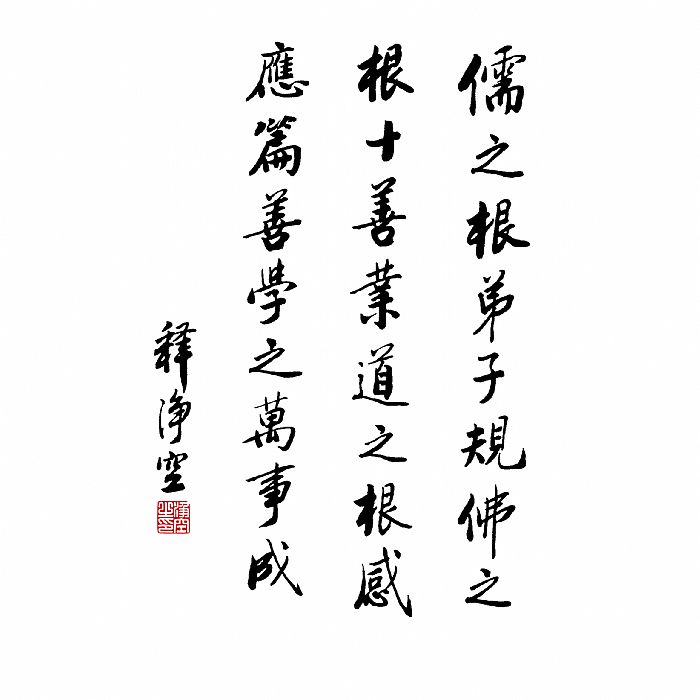 儒之根弟子規佛之
根十善業道之根感
應篇善學之萬事成
释淨空